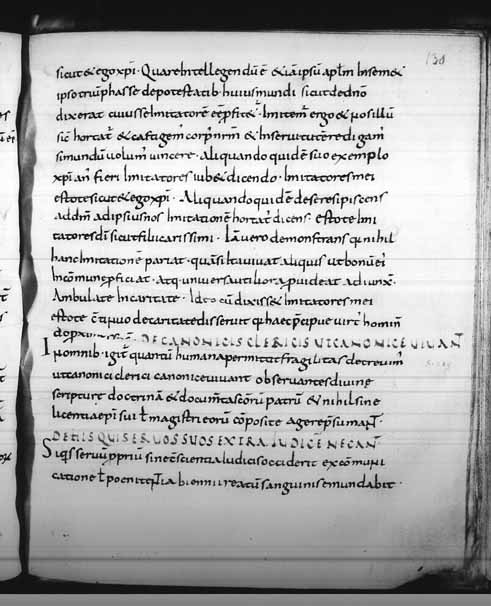 130
sicut & ego xp̄i · Quare intellegendū ē & iā ipsū aplm̄ in sem&
ipso triūphasse de potestatib· huius mundi sicut de dn̄o
dixerat cuius se imitatorē
ergo & nos illū
sic hortat̄ & castigem̄ corp' nr̄m & in servitutē redigam̄
si mundū volum̄ vincere · Aliquando quidē suo exemplo
xp̄ian̄ fieri imitatores iub& dicendo · Imitatores mei
estote sicut & ego xp̄i · Aliquando quidē de se resipiscens
ad dn̄m ad ipsius nos imitationē hortat̄ dicens · estote imi
tatores dī sicut filii carissimi · Iā vero demonstrans q nihil
hanc imitationē pariat · quā si ita vivat aliquis ut bonū ei'
in cōmune pficiat · atq· universa utiliora pvideat adiunx̄ ·
Ambulate in caritate · Ideo cū dixiss& imitatores mei
estote cōtinuo de caritate disseruit q haec pcipue virt' hominē
DE CANONICIS CLERICIS UT CANONICE VIVANT
In omnib· igit̄ quantū humana permittit fragilitas decrevim'
ut canonici clerici canonice vivant observantes divine
scripture doctrinā & documta scōrū patrū & nihil sine
licentia epī sui ł magistri eorū cōposite agere psumant
DE HIS QUI SERVOS SUOS EXTRA IUDICĒ NECANT
Si q̄s servū ppriū sine cscientia iudicis occiderit excōmuni
catione ł poenitentia biennii reatū sanguinis emundabit ·